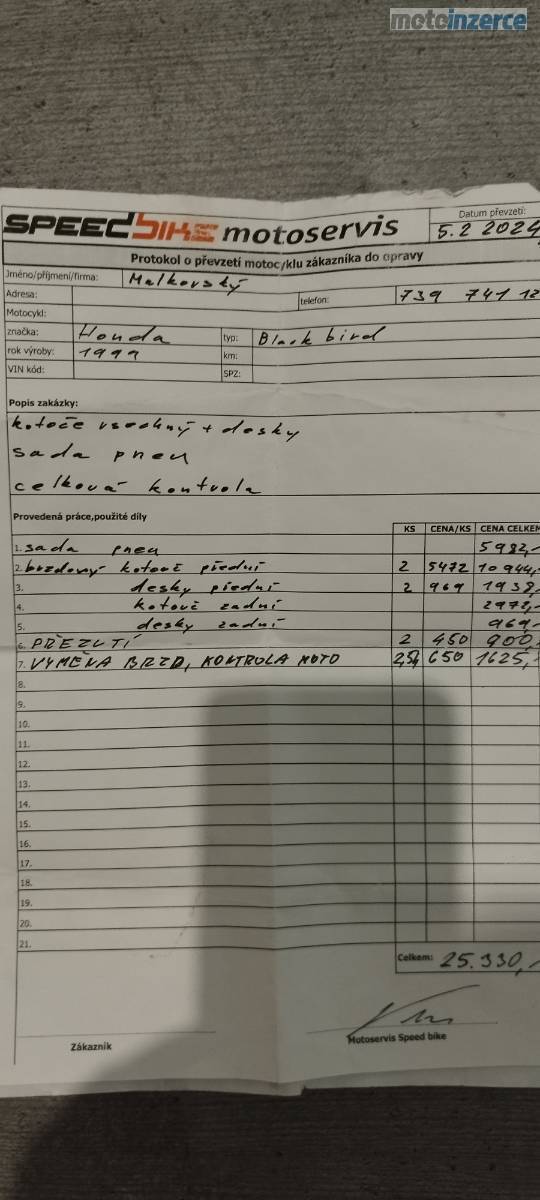 motoinzerce
SPEEDBIKE motoservis
Datum převzetí:
5.2 2024
Protokol o převzetí motocyklu zákazníka do opravy
Jméno/příjmení/firma: Malkovský
Adresa: telefon: 739 741 12
Motocykl:
značka: Honda typ: Black bird
rok výroby: 1999 km:
VIN kód: SPZ:
Popis zakázky:
kotoče všechny + desky
sada pneu
celková kontrola
Provedená práce,použité díly KS CENA/KS CENA CELKEM
1. sada pneu 5982,-
2. brzdový kotouč přední 2 5472 10944,-
3. desky přední 2 969 1938,-
4. kotouč zadní 2972,-
5. desky zadní 969,-
6. PŘEZUTÍ 2 450 900,-
7. VÝMĚNA BRZD, KONTROLA MOTO 2,5 650 1625,-
8.
9.
10.
11.
12.
13.
14.
15.
16.
17.
18.
19.
20.
21.
Celkem: 25.330,-
Zákazník
Motoservis Speed bike